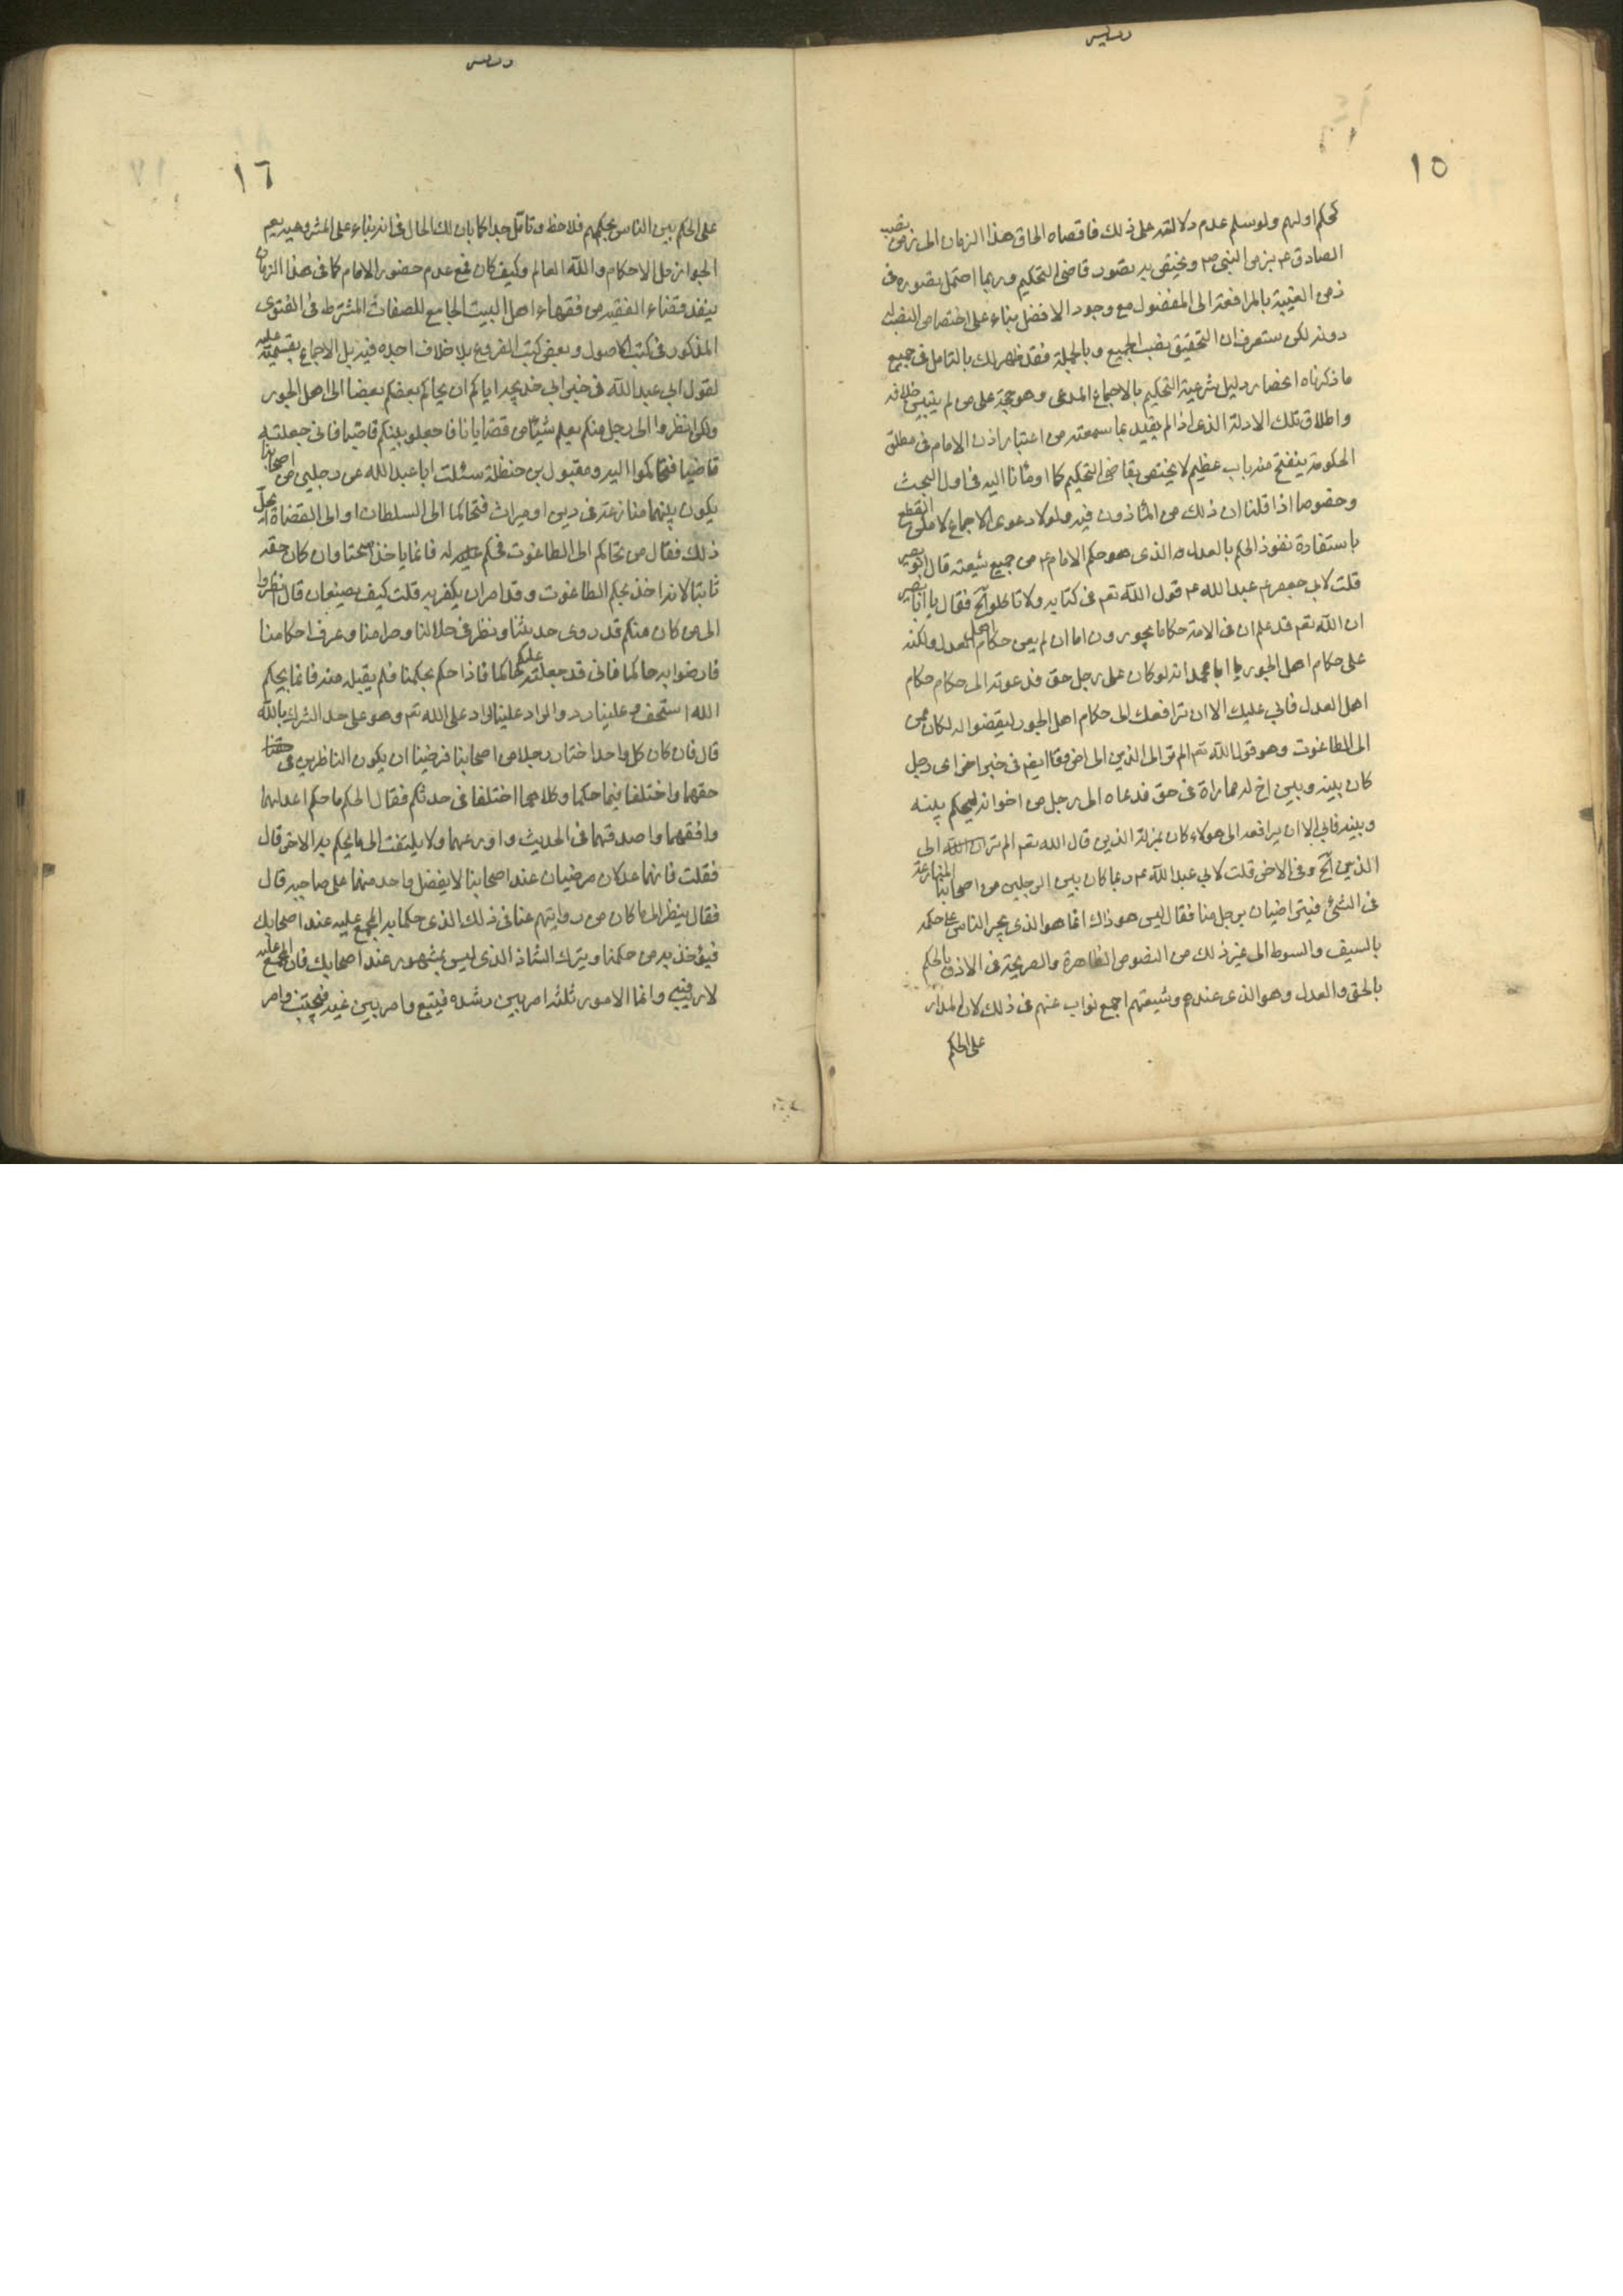 ١٥
كحكم اولهم ولو سلم عدم دلالته على ذلك فاقصاه الحاق هذا الزمان الى زمن نصب
الصادق ع بزمن النبى ص ويختص به تصور قاضى التحكيم وربما احتمل تصوره فى
زمن الغيبة بالمرافعة الى المفضول مع وجود الافضل بناء على اختصاص النصب له
دونه لكن ستعرف ان التحقيق نصب الجميع وبالجملة فقد ظهر لك بالتامل فى جميع
ما ذكرناه انحصار دليل شرعية التحكيم بالاجماع المدعى وهو حجة على من لم يتبين خلافه
واطلاق تلك الادلة الذى اذا لم يقيد بما سمعته من اعتبار اذن الامام فى مطلق
الحكومة ينفتح منه باب عظيم لا يختص بقاضى التحكيم كما اومانا اليه فى اول البحث
وخصوصا اذا قلنا ان ذلك من المأذون فيه ولولا دعوى الاجماع لامكن القطع
باستفادة نفوذ الحكم بالعدل الذى هو حكم الامام ع من جميع شيعته قال ابو بصير
قلت لابى عبد الله ع قول الله تعم فى كتابه ولا تاكلوا الخ فقال يا ابا بصير
ان الله تعم قد علم ان فى الامة حكاما يجورون اما ان لم يعن حكام اهل العدل ولكنه
عنى حكام اهل الجور يا ابا محمد انه لو كان على رجل حق فدعوته الى حكام
اهل العدل فابى عليك الا ان ترافعك الى حكام اهل الجور ليقضوا له لكان ممن
الى الطاغوت وهو قول الله تعم الم تر الى الذين الى اخر وقال ايضم فى خبر اخر اى رجل
كان بينه وبين اخ له مماراة فى حق فدعاه الى رجل من اخوانه ليحكم بينه
وبينه فابى الا ان يرافعه الى هولاء كان بمنزلة الذين قال الله تعم الم تر الى
الذين الخ وفى الاخر قلت لابى عبد الله ع ربما كان بين الرجلين من اصحابنا المنازعة
فى الشئ فيتراضيان برجل منا فقال ليس هو ذاك انما هو الذى يجبر الناس على حكمه
بالسيف والسوط الى غير ذلك من النصوص الظاهرة والصريحة فى الاذن بالحكم
بالحق والعدل وهو الذى عندهم وشيعتهم اجمع نواب عنهم فى ذلك لان المدار
على الحكم
١٦
على الحكم بين الناس بحكمهم فلاحظ وتامل جدا كما بان لك الحال فى انه بناء على المشروعية يعم
الجواز كل الاحكام والله العالم وكيف كان فمع عدم حضور الامام كما فى هذا الزمان
ينفذ قضاء الفقيه من فقهاء اهل البيت الجامع للصفات المشترطة فى الفتوى
المذكور فى كتب الاصول وبعض كتب الفروع بلا خلاف اجده فيه بل الاجماع بقسميه عليه
لقول ابى عبد الله فى خبر ابى خديجه اياكم ان يحاكم بعضكم بعضا الى اهل الجور
ولكن انظروا الى رجل منكم يعلم شيئا من قضايانا فاجعلوه بينكم قاضيا فانى جعلته
قاضيا فتحاكموا اليه ومقبول بن حنظلة سئلت ابا عبد الله عن رجلين من اصحابنا
يكون بينهما منازعة فى دين او ميراث فتحاكما الى السلطان او الى القضاة ايحل
ذلك فقال من تحاكم الى الطاغوت فحكم له فانما ياخذ سحتا وان كان حقه
ثابتا لانه اخذ بحكم الطاغوت وقد امر ان يكفر به قلت كيف يصنعان قال انظروا
الى من كان منكم قد روى حديثنا ونظر فى حلالنا وحرامنا وعرف احكامنا
فارضوا به حاكما فانى قد جعلته عليكم حاكما فاذا حكم بحكمنا فلم يقبله منه فانما بحكم
الله استخف وعلينا رد والراد علينا الراد على الله تعم وهو على حد الشرك بالله
قال فان كان كل واحد اختار رجلا من اصحابنا فرضينا ان يكون الناظرين فى
حقهما واختلفا فيما حكما وكلاهما اختلفا فى حديثكم فقال الحكم ما حكم اعدلهما
وافقههما واصدقهما فى الحديث واورعهما ولا يلتفت الى ما يحكم به الاخر قال
فقلت فانهما عدلان مرضيان عند اصحابنا لا يفضل واحد منهما على صاحبه قال
فقال ينظر الى ما كان من روايتهم عنا فى ذلك الذى حكما به المجمع عليه عند اصحابك
فيؤخذ به من حكمنا ويترك الشاذ الذى ليس بمشهور عند اصحابك فان المجمع عليه
لا ريب فيه وانما الامور ثلثه امر بين رشده فيتبع وامر بين غيه فيجتنب وامر